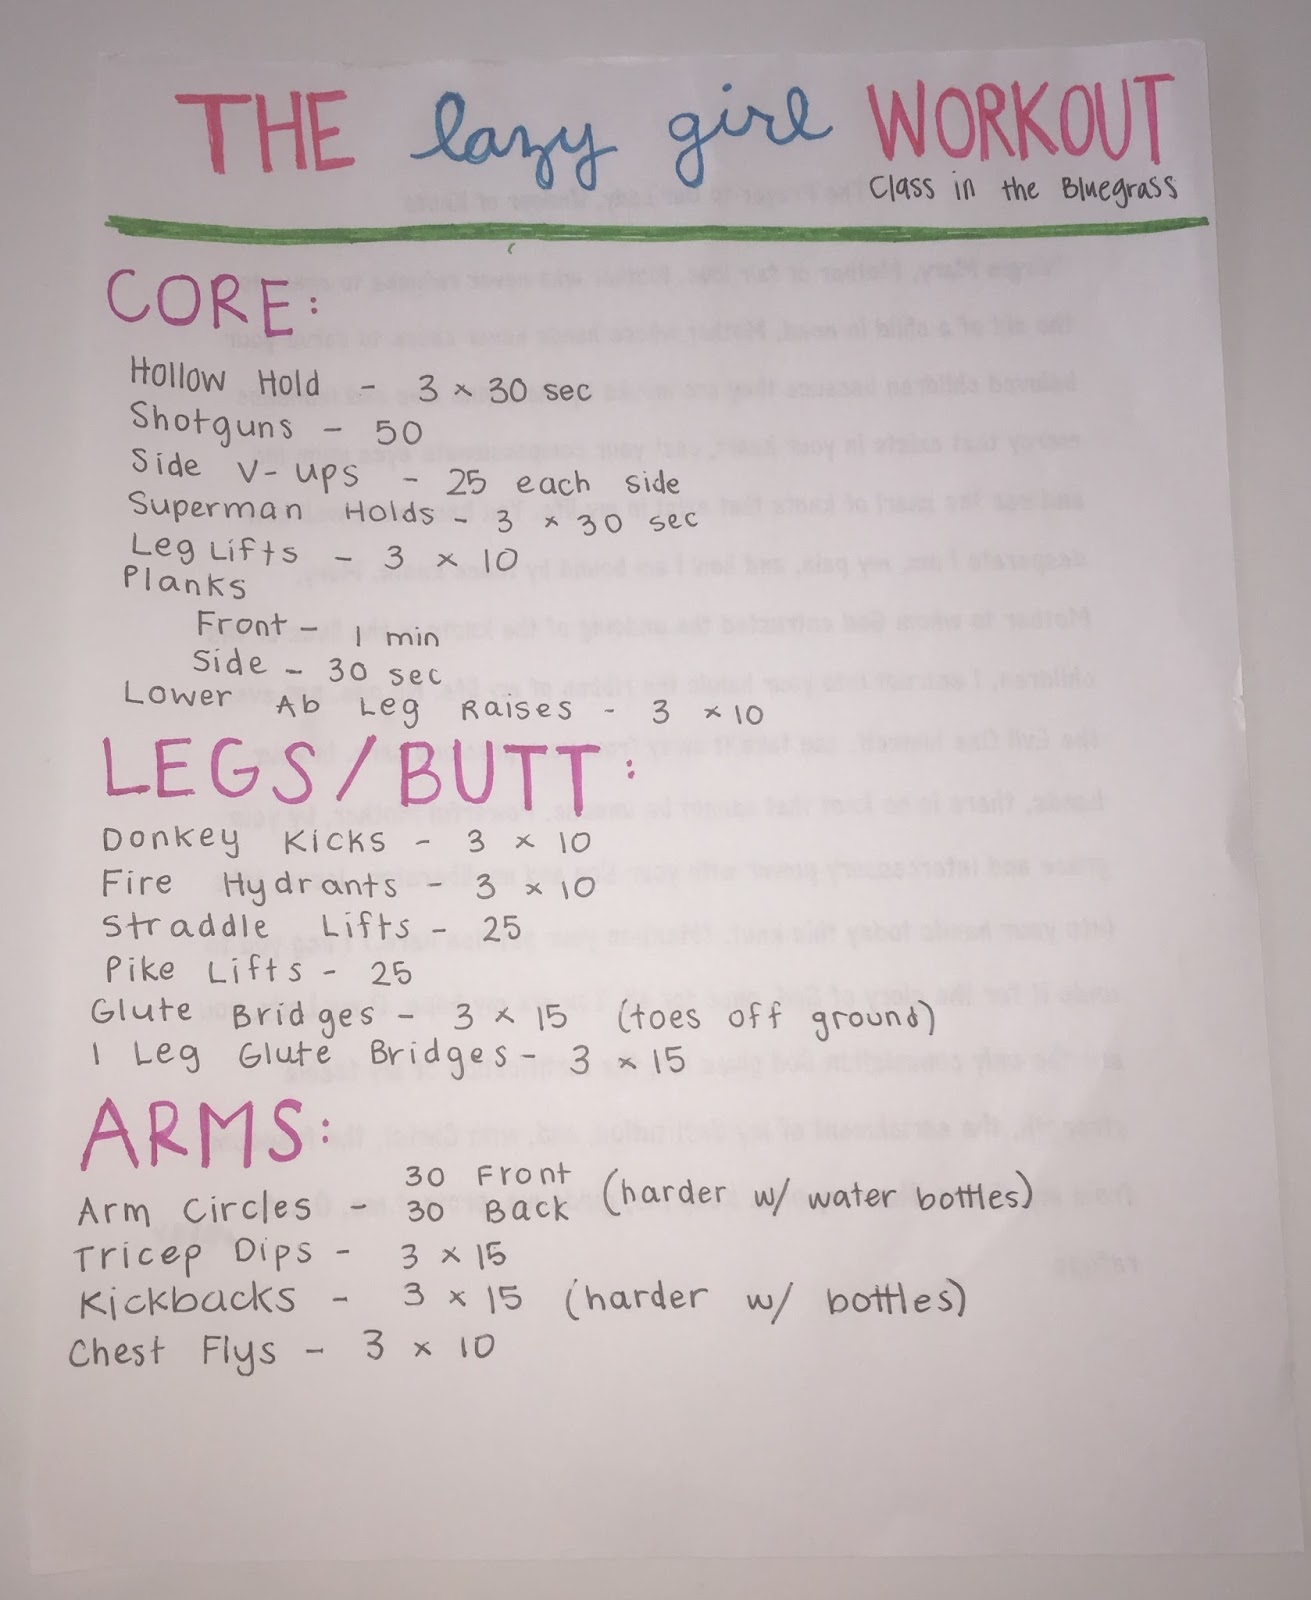 THE lazy girl WORKOUT
Class in the Bluegrass
CORE:
Hollow Hold - 3 x 30 sec
Shotguns - 50
Side V-ups - 25 each side
Superman Holds - 3 x 30 sec
Leg Lifts - 3 x 10
Planks
Front - 1 min
Side - 30 sec
Lower Ab Leg Raises - 3 x 10
LEGS/BUTT:
Donkey Kicks - 3 x 10
Fire Hydrants - 3 x 10
Straddle Lifts - 25
Pike Lifts - 25
Glute Bridges - 3 x 15 (toes off ground)
1 Leg Glute Bridges - 3 x 15
ARMS:
Arm Circles - 30 Front 30 Back (harder w/ water bottles)
Tricep Dips - 3 x 15
Kickbacks - 3 x 15 (harder w/ bottles)
Chest Flys - 3 x 10